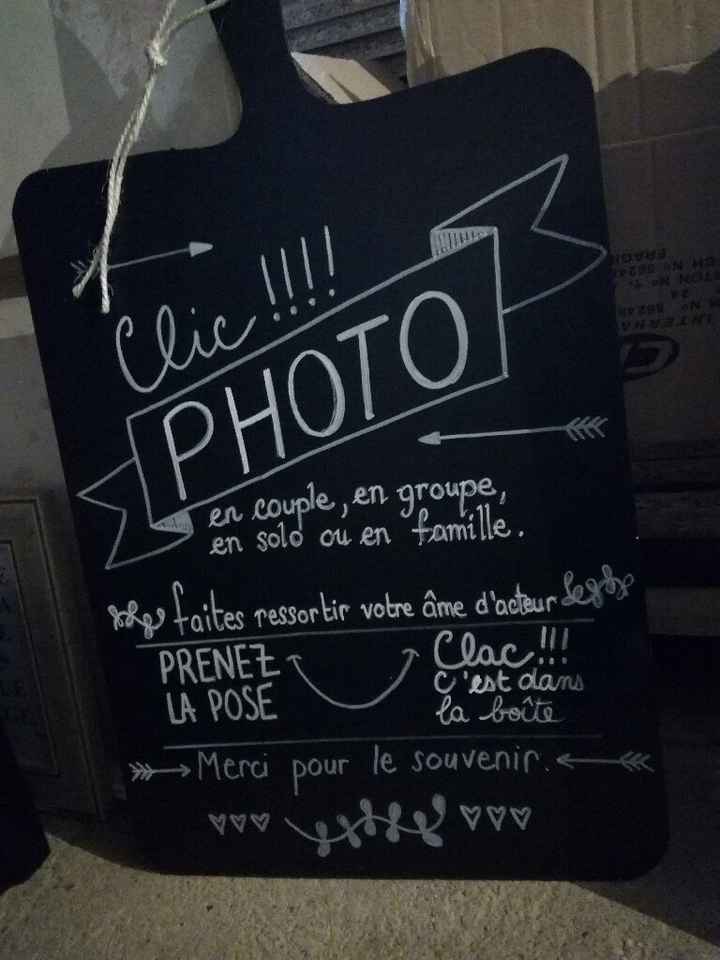 Clic !!!!
PHOTO
en couple, en groupe,
en solo ou en famille.
faites ressortir votre âme d'acteur
PRENEZ
LA POSE
Clac !!!
c'est dans
la boîte
Merci pour le souvenir.
INTERNA
FRAGI